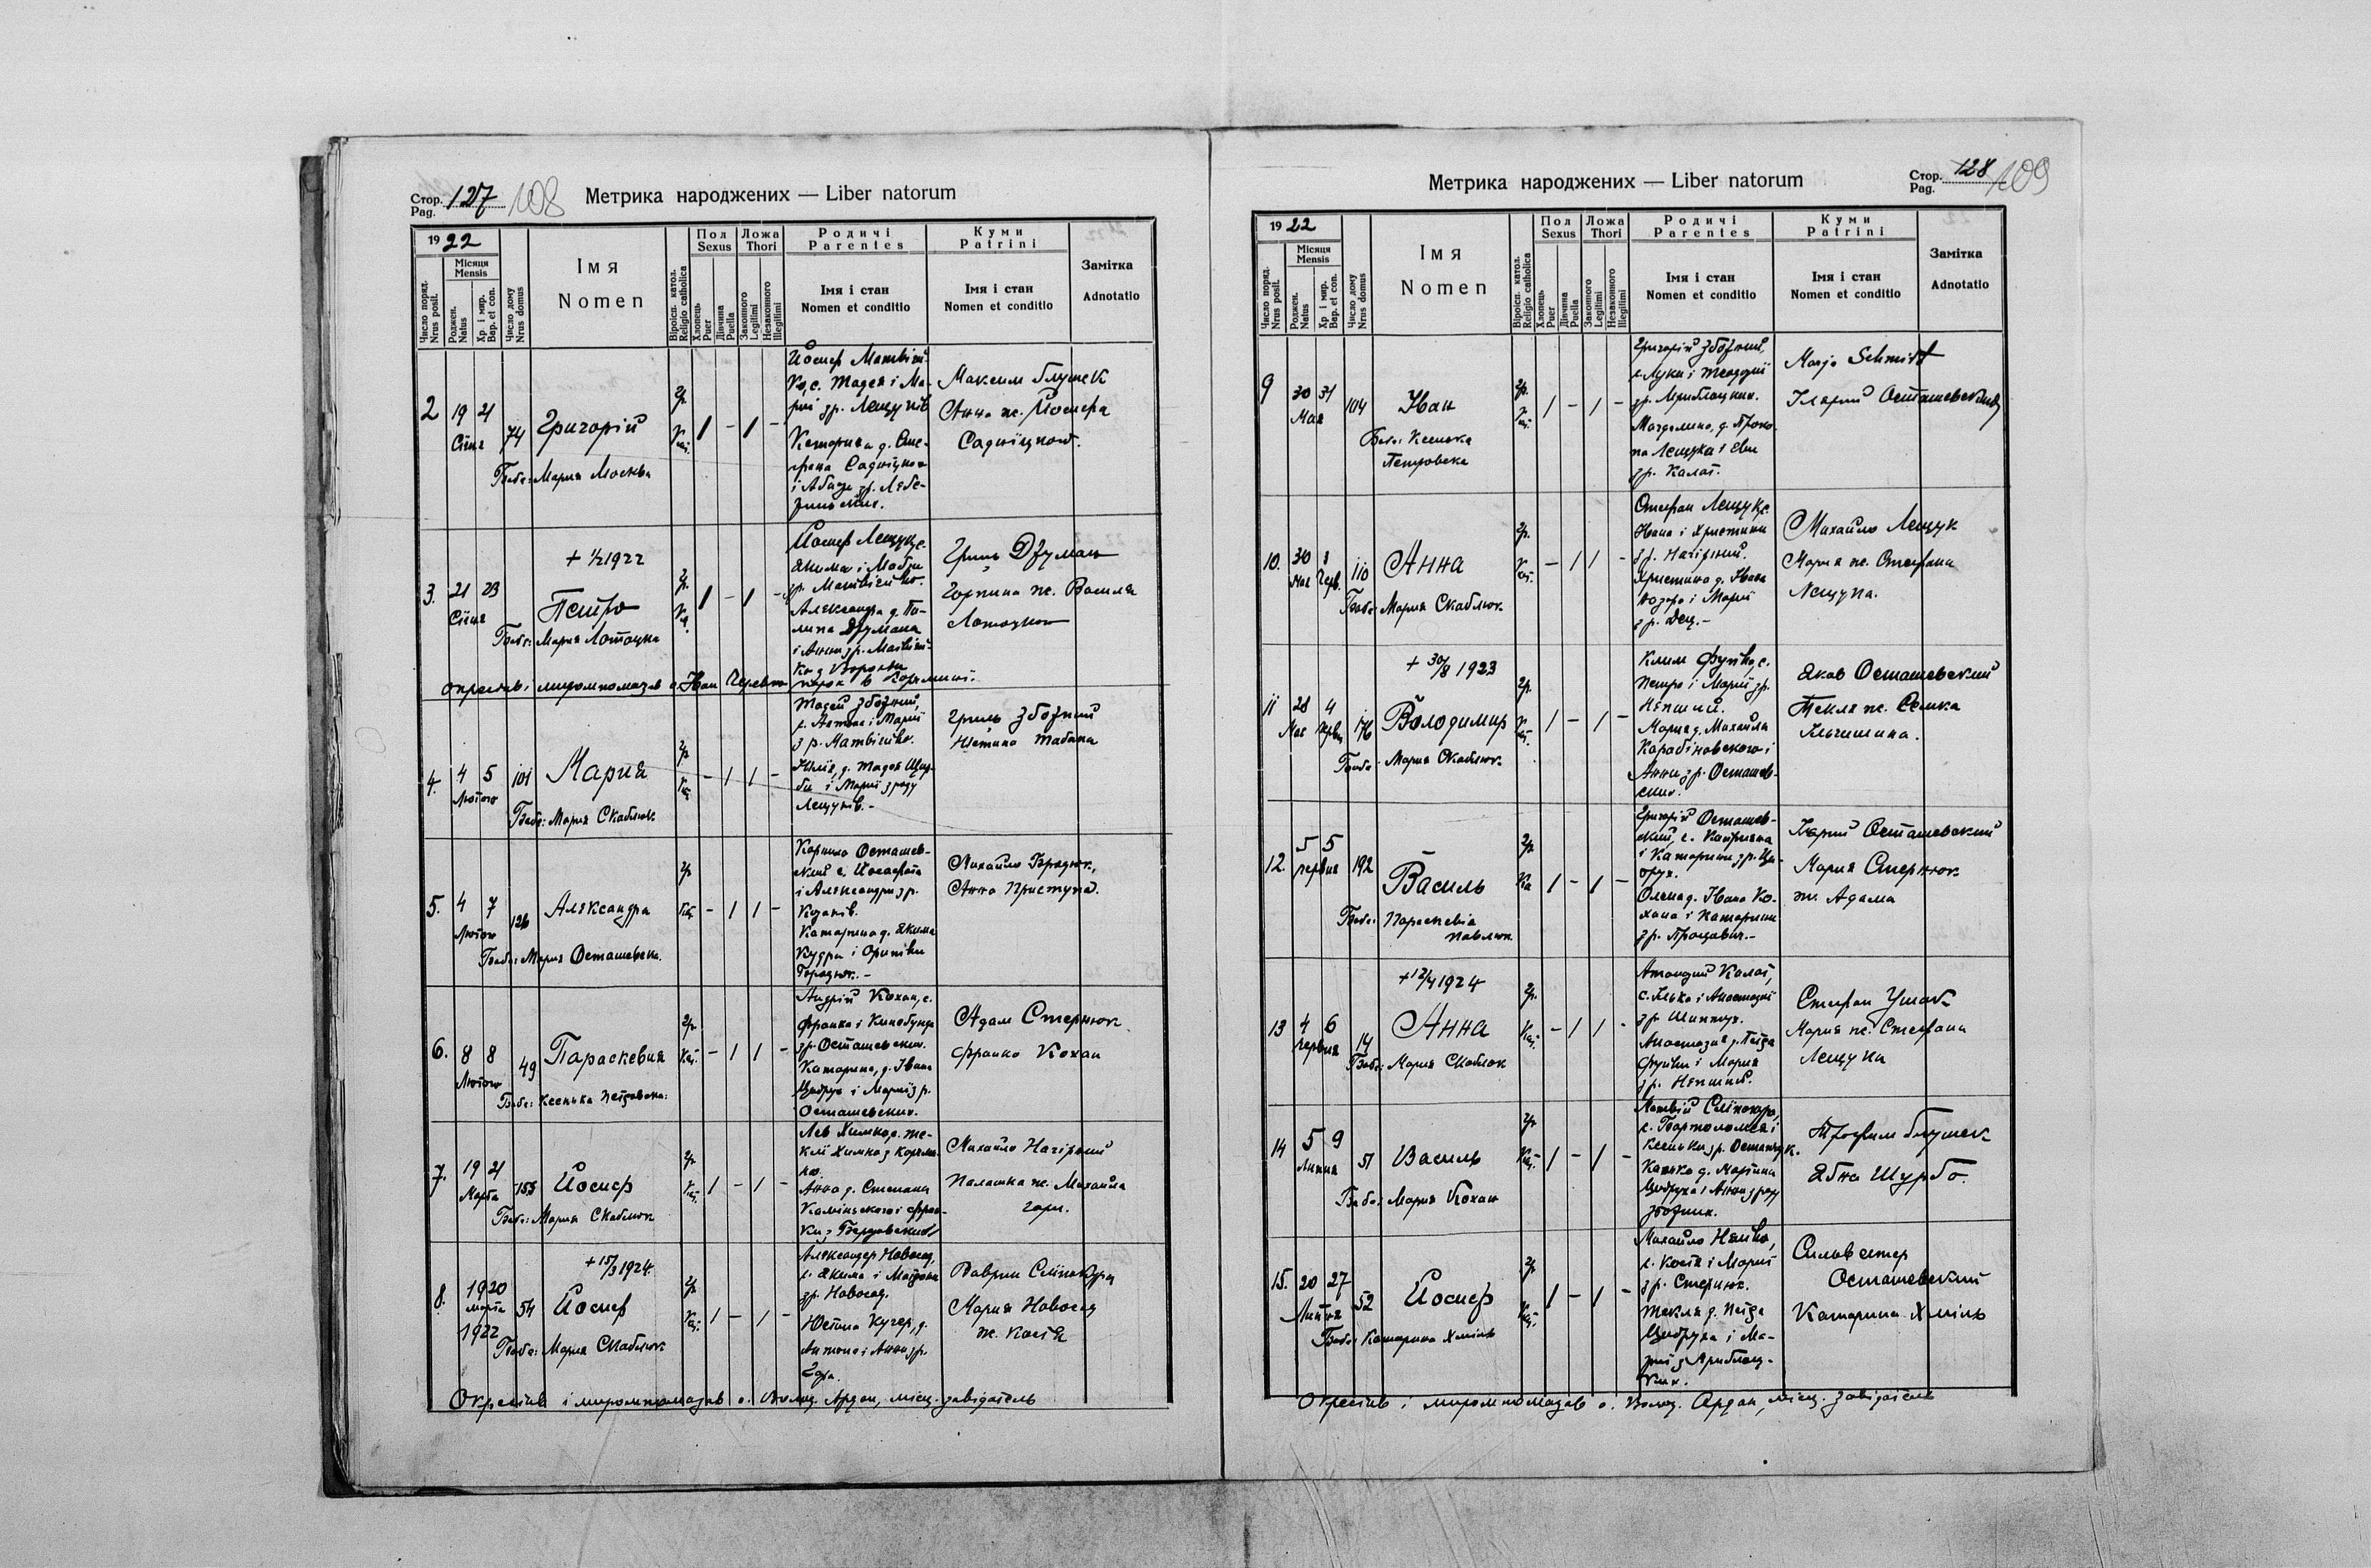 Стор. Pag. 127 108
Метрика народжених — Liber natorum
19 22
Число поряд. Nrus posit.
Місяця Mensis
Роджен. Natus
Хр. і мир. Bap. et con.
Число дому Nrus domus
Імя
Nomen
Віроісп. катол. Religio catholica
Пол Sexus
Хлопець Puer
Дівчина Puella
Ложа Thori
Законного Legitimi
Незаконного Illegitimi
Родичі
Parentes
Імя і стан
Nomen et conditio
Куми
Patrini
Імя і стан
Nomen et conditio
Замітка
Adnotatio
2 19 21 Січня 74
Григорій
Баба: Мария Москва
Гр. Кат. 1 - 1 -
Йосиф Матвій-
ко, с. Тадея і Ма-
рії зр. Лещуків
Катерина д. Сте-
фана
Максим Глушек
Анна ж. Йосифа
3. 21 23 Січня
+ 1/2 1922
Петро
Баба: Мария Лотоцка
1 - 1 -
Йосиф Лещук, с.
Якима і
зр. Матвійко.
Александра д. Пи-
липа Думана
і Анни зр. Матвій-
ко з
Гриць
ж. Василя
Лотоцкого
окрестив і миропомазав о. Іван
4. 4 5 Лютого 101
Мария
Баба: Мария Скаблюк
Гр. - 1 1 -
Тадей Збожний,
с. Антона і Марії
з р. Матвійко.
Юлія, д. Тадея
і Марії з роду
Лещуків.-
Гриць Збожний
Юстина Табака
5. 4 7 Лютого 126
Александра
Баба: Мария Осташевска.
Гр. Кат. - 1 1 -
Корнило Осташев-
ский с. Йосафата
і Александри зр.
Катарина д. Якима
Кудри і
Михайло
Анна Приступа.
6. 8 8 Лютого 49
Параскевия
Баба: Ксенька Петровска:
Гр. Кат. - 1 1 -
Андрій Кохан, с.
Франка і Кинебунди
зр. Осташевских.
Катарина, д. Івана
Цибрух і Марії зр.
Осташевских.
Адам Стернюк
Франко Кохан
7. 19 21 Марта 153
Йосиф
Баба: Мария Скаблюк
Гр. Кат. 1 - 1 -
Лев Химка, с. Те-
клі Химка з
Анна д. Степана
Камінського і Фран-
ки з
Михайло Нагірний
Палашка ж. Михайла
8. 19 20 Марта 1922 54
+ 15/3 1924
Йосиф
Баба: Мария Скаблюк
Гр. Кат. 1 - 1 -
Александер Новосад,
с. Якима і
зр. Новосад.
Юстина Кучер, д.
Антона і Анни зр.
Гоза.
Ваврин Слінокура
Мария Новосад
ж. Костя
Окрестив і миропомазав о. Волод. Ардан, місц. завідатель
Стор. Pag. 128 109
Метрика народжених — Liber natorum
19 22
Число поряд. Nrus posit.
Місяця Mensis
Роджен. Natus
Хр і мир. Bap. et con.
Число дому Nrus domus
Імя
Nomen
Віроісп. катол. Religio catholica
Пол Sexus
Хлопець Puer
Дівчина Puella
Ложа Thori
Законного Legitimi
Незаконного Illegitimi
Родичі
Parentes
Імя і стан
Nomen et conditio
Куми
Patrini
Імя і стан
Nomen et conditio
Замітка
Adnotatio
9 30 31 Мая 104
Іван
Баба: Ксенька
Петровска
Гр. Кат. 1 - 1 -
Григорій Збожний,
с. Луки і Теодозії
зр. Приблоцких.
Магдалина, д. Проко-
па Лещука і Еви
зр. Калат.
Marja Schmidt
Іларий Осташевский
10. 30 Мая 1 Черв. 110
Анна
Баба: Мария Скаблюк
Гр. Кат. - 1 1 -
Стефан Лещук, с.
Івана і Христини
зр. Нагірний.
Христина д. Івана
і Марії
зр. Дец.-
Михайло Лещук
Мария ж. Стефана
Лещука.
11 28 Мая 4 Червня 176
+ 30/8 1923
Володимир
Баба: Мария Скаблюк
Гр. Кат. 1 - 1 -
Клим Футко, с.
Петра і Марії зр.
Непший.
Мария д. Михайла
Карабіновского і
Анни зр. Осташев-
ских.
Яков Осташевский
Текля ж. Семка
12. 5 5 Червня 192
Василь
Баба: Параскевія
Павлюк
Гр. Ка 1 - 1 -
Григорій Осташев-
ский, с.
і Катарини зр. Ци-
брух.
Олена д. Івана Ко-
хана і Катарини
зр. Процавич.-
Іларий Осташевский
Мария Стернюк
ж. Адама
13 4 6 Червня 14
+ 12/4 1924
Анна
Баба: Мария Скаблюк
Гр. Кат. - 1 1 -
Калат,
с. Ілька і Анастазії
Анастазия д. Петра
Футки і Мария
зр. Непший.
Стефан Ушак
Мария ж. Стефана
Лещука
14 5 9 Липня 51
Василь
Баба: Мария Кохан
Гр. Кат. 1 - 1 -
Матвій Слінокура,
с. Бартоломея і
Ксеньки зр. Осташук.
Каська д. Мартина
Цибруха і Анни з роду
Збожних.
Трофим Глушек
Явна Щурба.
15. 20 27 Липня 52
Йосиф
Баба: Катарина Хміль
Гр. Кат. 1 - 1 -
Михайло Нямко,
с. Костя і Марії
зр. Стернюк.
Текля д. Петра
Цибруха і Ма-
рії з Приблоц-
ких.
Сильвестер
Осташевский
Катарина Хміль
Окрестив і миропомазав о. Волод. Ардан, місц. завідатель